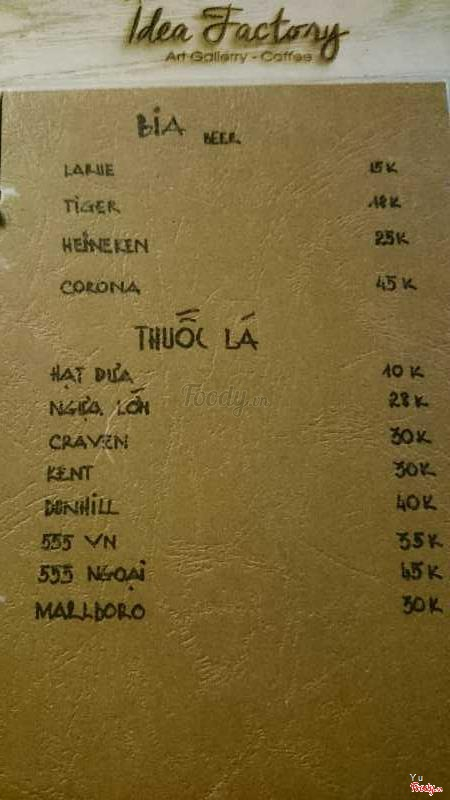 Idea Factory
Art Gallerry - Coffee
BIA BEER
LARUE 15K
TIGER 18K
HEINEKEN 25K
CORONA 45K
THUỐC LÁ
HẠT DƯA 10K
NGỰA LỚN 28K
CRAVEN 30K
KENT 30K
DUNHILL 40K
555 VN 35K
555 NGOẠI 45K
MARLBORO 30K
Foody.vn
Yu
Foody.vn